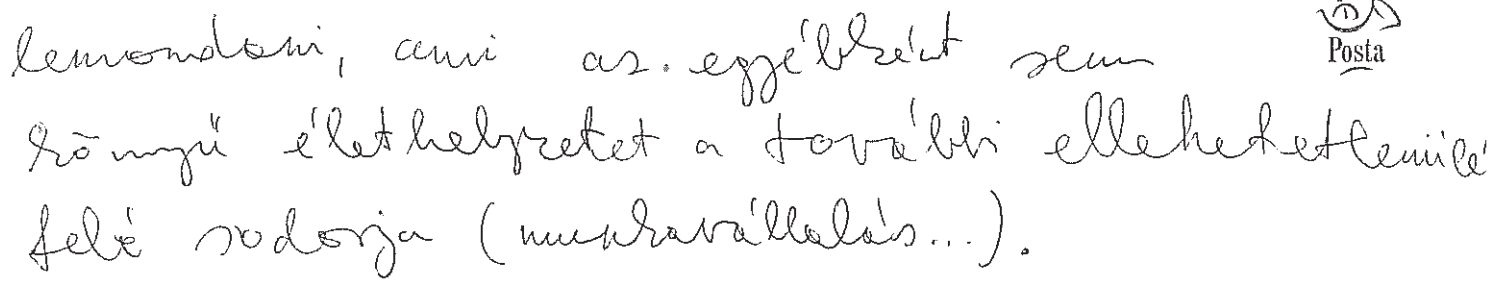 lemondani, ami az egyébként sem
Posta
könnyű élethelyzetet a további ellehetetlenülé
felé sodorja (munkavállalás...).